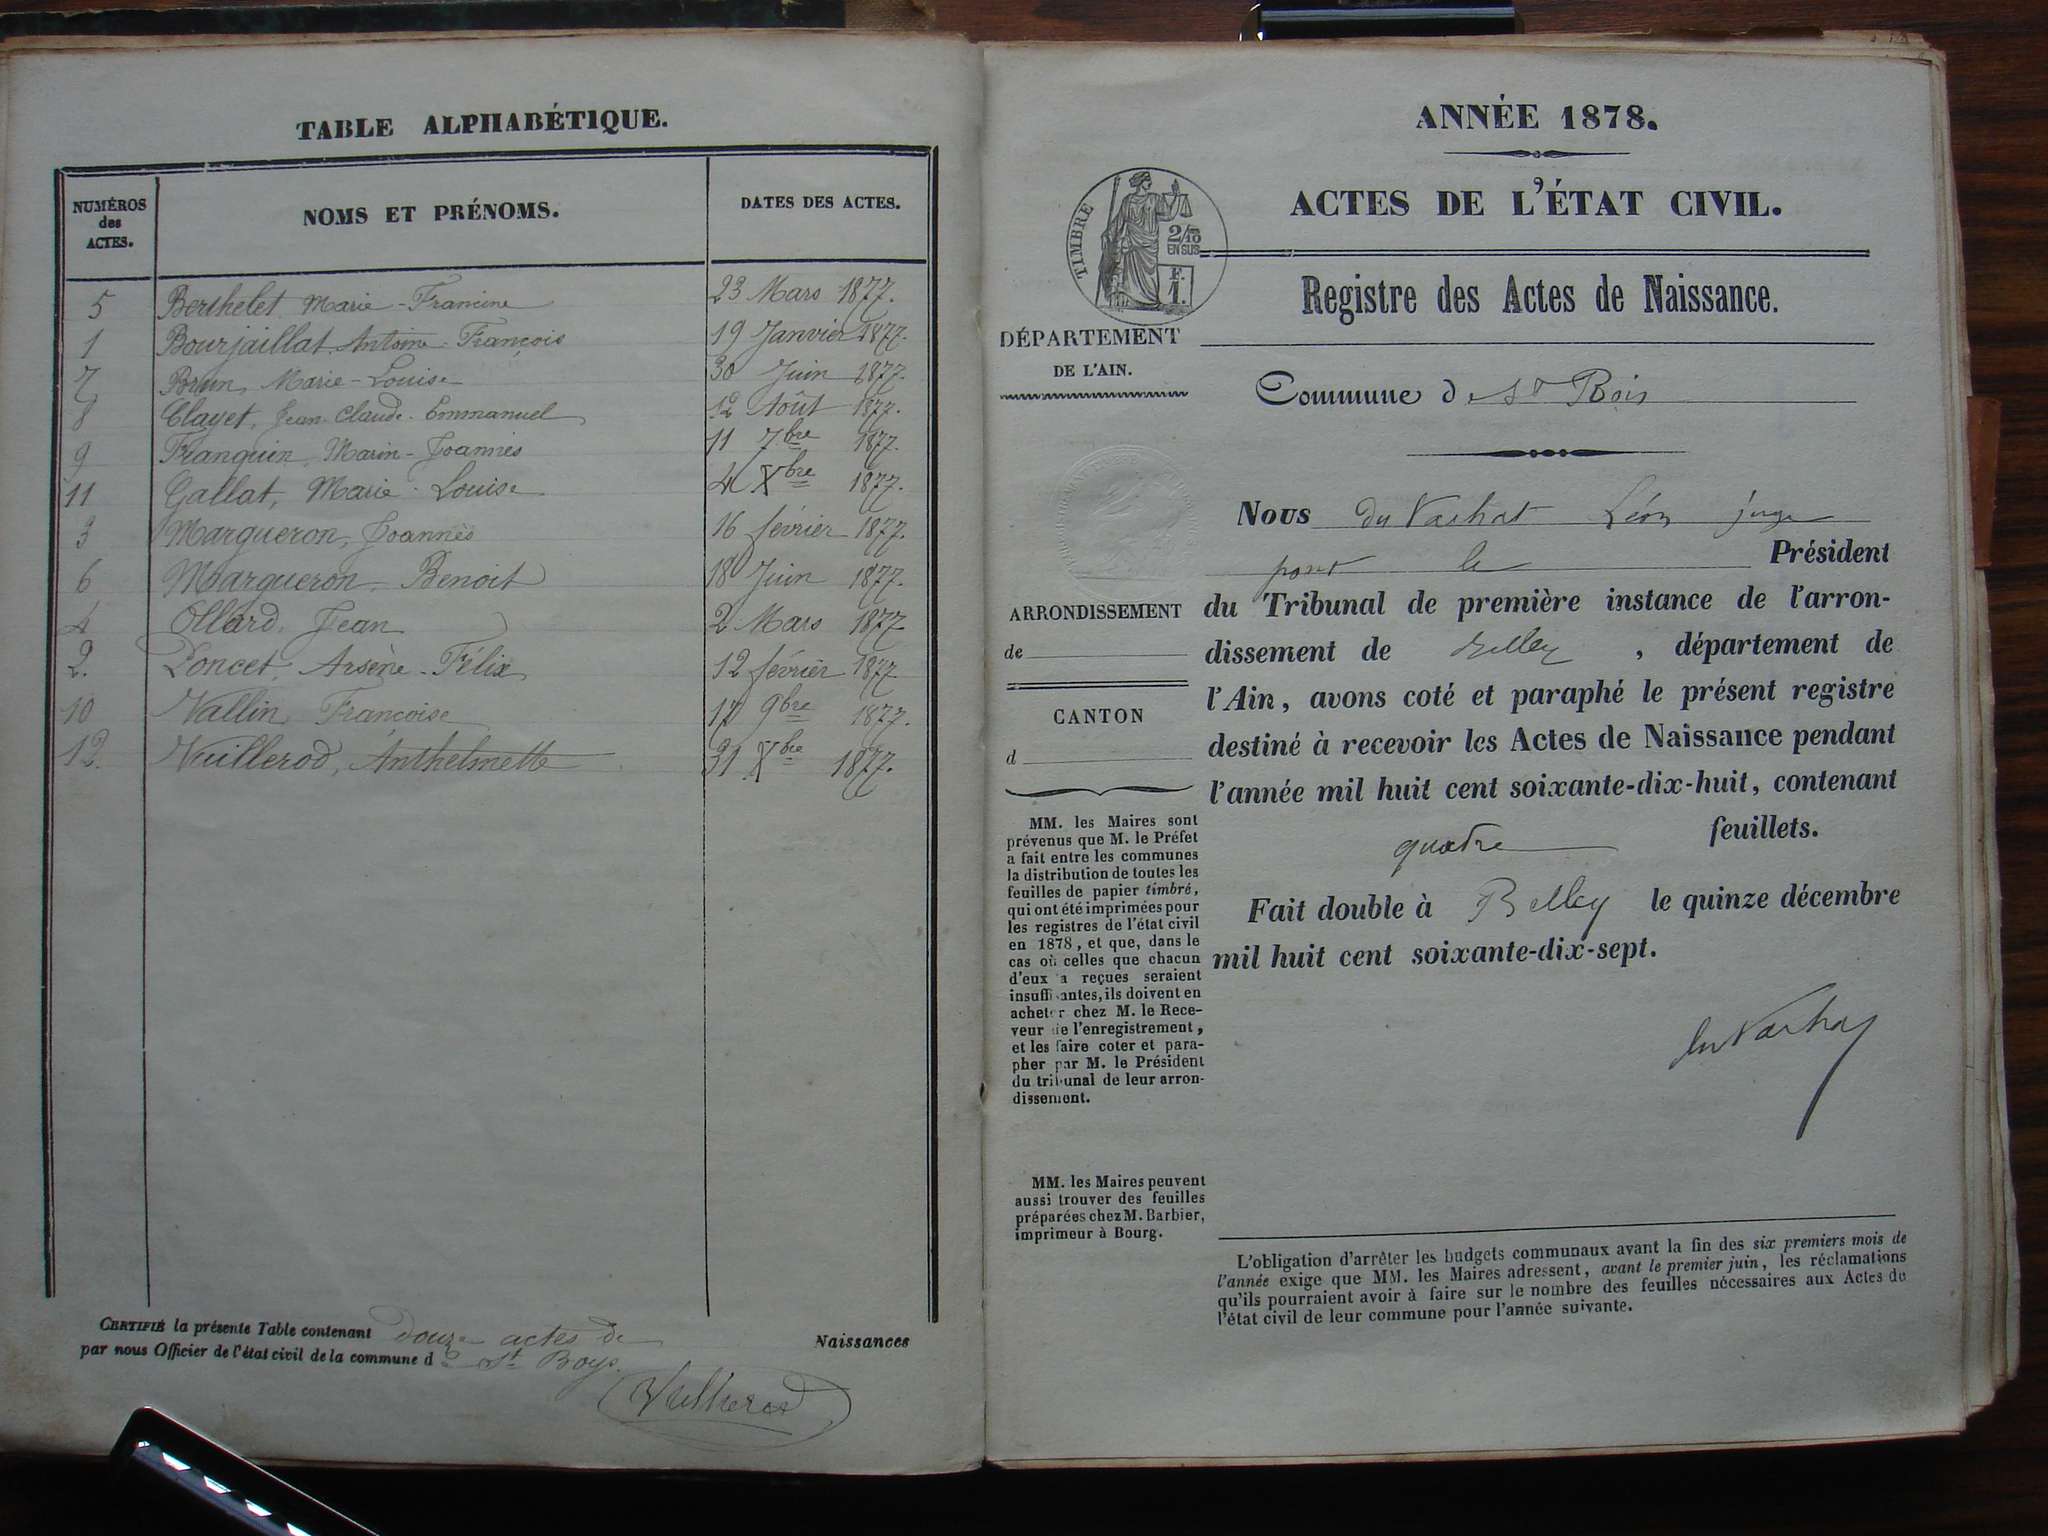 TABLE ALPHABÉTIQUE.
NUMÉROS des ACTES. NOMS ET PRÉNOMS. DATES DES ACTES.
5 Berthelet Marie-Francine 23 Mars 1877.
1 Bourjaillat Antoine-François 19 Janvier 1877.
7 Brun, Marie-Louise 30 Juin 1877.
8 Clayet, Jean-Claude-Emmanuel 12 Août 1877.
9 Franquin, Marin-Joannès 11 7bre 1877.
11 Gallat, Marie-Louise 4 Xbre 1877.
3 Margueron, Joannès 16 février 1877.
6 Margueron, Benoit 18 Juin 1877.
4 Ollard, Jean 2 Mars 1877.
2. Poncet, Arsène-Félix 12 février 1877
10 Vallin Françoise 17 9bre 1877.
12. Vuillerod, Anthelmette 31 Xbre 1877.
CERTIFIÉ la présente Table contenant douze actes de Naissances
par nous Officier de l'état civil de la commune de St Boys.
Vuillerod
ANNÉE 1878.
ACTES DE L'ÉTAT CIVIL.
TIMBRE
2/10 EN SUS
F. 1.
Registre des Actes de Naissance.
DÉPARTEMENT
DE L'AIN.
Commune de St Bois
Nous du Vachat Léon juge
pour le Président
du Tribunal de première instance de l'arron-
dissement de Belley, département de
l'Ain, avons coté et paraphé le présent registre
destiné à recevoir les Actes de Naissance pendant
l'année mil huit cent soixante-dix-huit, contenant
quatre feuillets.
Fait double à Belley le quinze décembre
mil huit cent soixante-dix-sept.
du Vachat
ARRONDISSEMENT
de
CANTON
d
MM. les Maires sont
prévenus que M. le Préfet
a fait entre les communes
la distribution de toutes les
feuilles de papier timbré,
qui ont été imprimées pour
les registres de l'état civil
en 1878, et que, dans le
cas où celles que chacun
d'eux a reçues seraient
insuffisantes, ils doivent en
acheter chez M. le Rece-
veur de l'enregistrement,
et les faire coter et para-
pher par M. le Président
du tribunal de leur arron-
dissement.
MM. les Maires peuvent
aussi trouver des feuilles
préparées chez M. Barbier,
imprimeur à Bourg.
L'obligation d'arrêter les budgets communaux avant la fin des six premiers mois de
l'année exige que MM. les Maires adressent, avant le premier juin, les réclamations
qu'ils pourraient avoir à faire sur le nombre des feuilles nécessaires aux Actes de
l'état civil de leur commune pour l'année suivante.